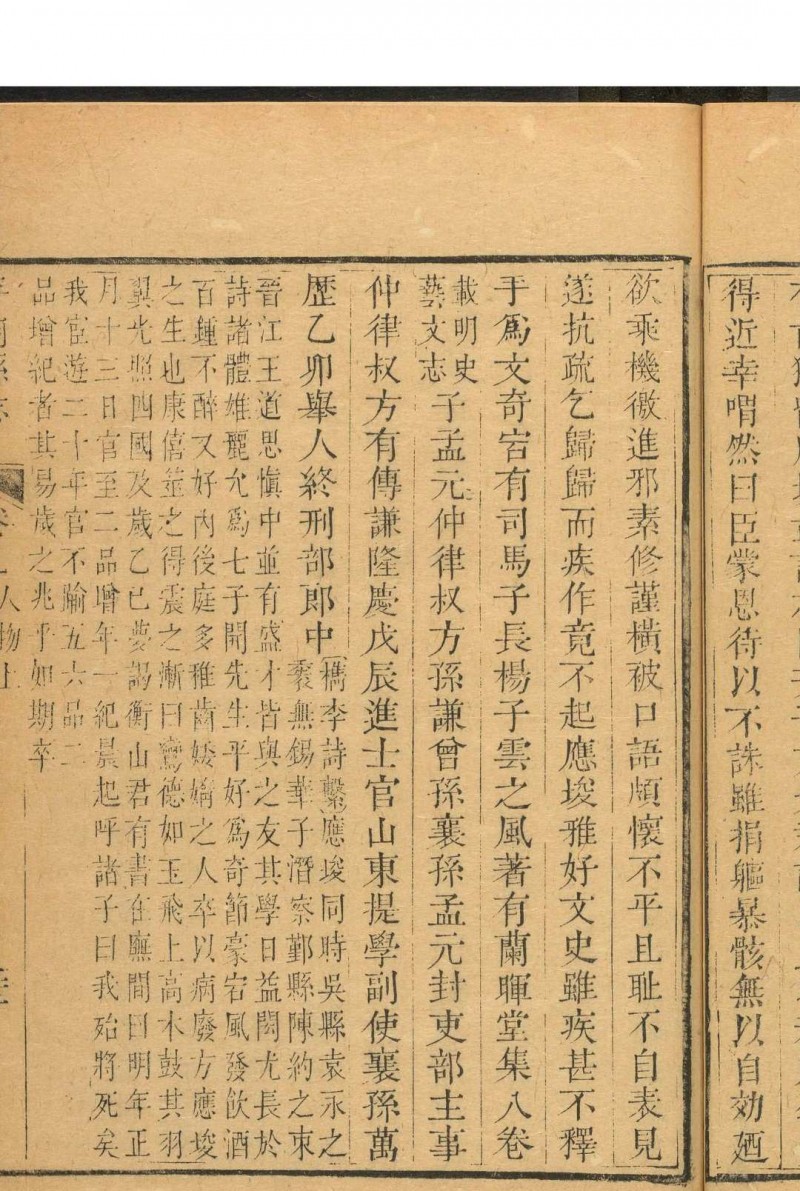 得近幸喟然曰臣蒙恩待以不誅雖捐軀暴骸無以自効廼
欲乘機徼進邪素修謹橫被口語頗懷不平且耻不自表見
遂抗疏乞歸歸而疾作竟不起應埈雅好文史雖疾甚不釋
于爲文奇宕有司馬子長楊子雲之風著有蘭暉堂集八卷
載明史
藝文志
子孟元仲律叔方孫謙曾孫襄孫孟元封吏部主事
仲律叔方有傳謙隆慶戊辰進士官山東提學副使襄孫萬
歷乙卯舉人終刑部郎中
檇李詩繫應埈同時吳縣袁永之
袠無錫華子潛察鄞縣陳約之束
晉江王道思愼中並有盛才皆與之友其學日益閎尤長於
詩諸體雄麗允爲七子開先生平好爲奇節豪宕風發飲酒
百鍾不醉又好內後庭多雅齒婑媠之人卒以病廢方應埈
之生也康僖筮之得震之漸曰鸞德如玉飛上高木鼓其羽
翼光照四國及歲乙巳夢謁衡山君有書在廡間曰明年正
月十三日官至二品增年一紀晨起呼諸子曰我殆將死矣
我官遊二十年官不踰五六品二
品增紀者其易歲之兆乎如期卒
人物上